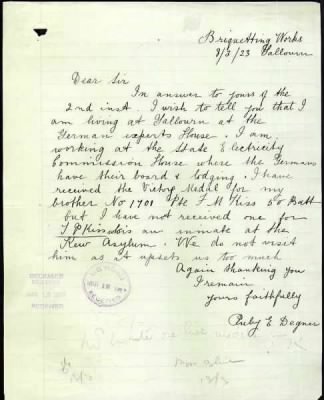 Briquetting Works
8/3/23 Yallourn
Dear Sir
In answer to yours of the
2nd inst. I wish to tell you that I
am living at Yallourn at the
German experts House. I am
working at the State Electricity
Commission House where the Germans
have their board & lodging. I have
received the Victory Medal for my
brother No 1701 Pte F. M. Kiss 60 Batt
but I have not received one for
an inmate at the
Kew Asylum. We do not visit
him as it upsets us too much
Again thanking you
I remain
yours faithfully
Ruby E Degner
RECEIVED